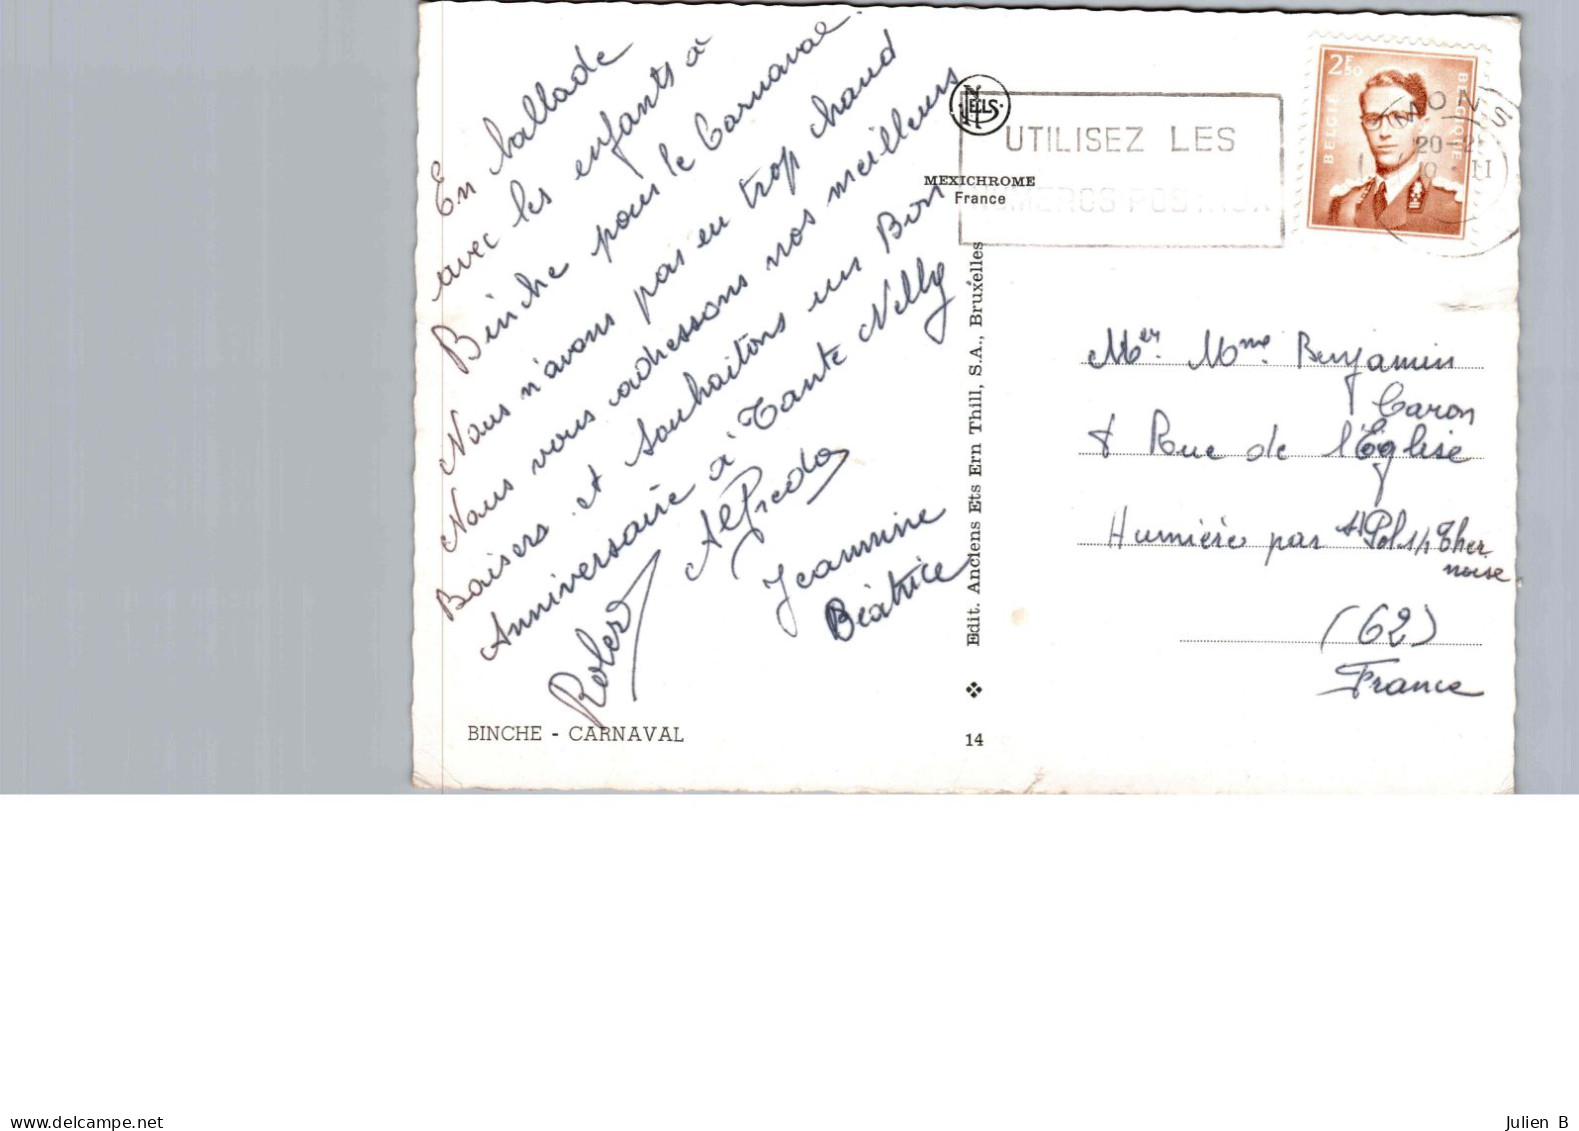 En ballade
avec les enfants à
Binche pour le Carnaval.
Nous n'avons pas eu trop chaud
Nous vous adressons nos meilleurs
Baisers et souhaitons un Bon
Anniversaire à Tante Nelly
Alfredo
Robert
Jeannine
Béatrice
BINCHE - CARNAVAL
NELS
MEXICHROME
France
Edit. Anciens Ets Ern Thill, S.A., Bruxelles
14
UTILISEZ LES
NUMEROS POSTAUX
2F50
BELGIE BELGIQUE
MONS
20-2
II
Mer Mme Benjamin
Caron
8 Rue de l'Eglise
Humière par St Pol s/s Ther
noise
(62)
France
www.delcampe.net
Julien B